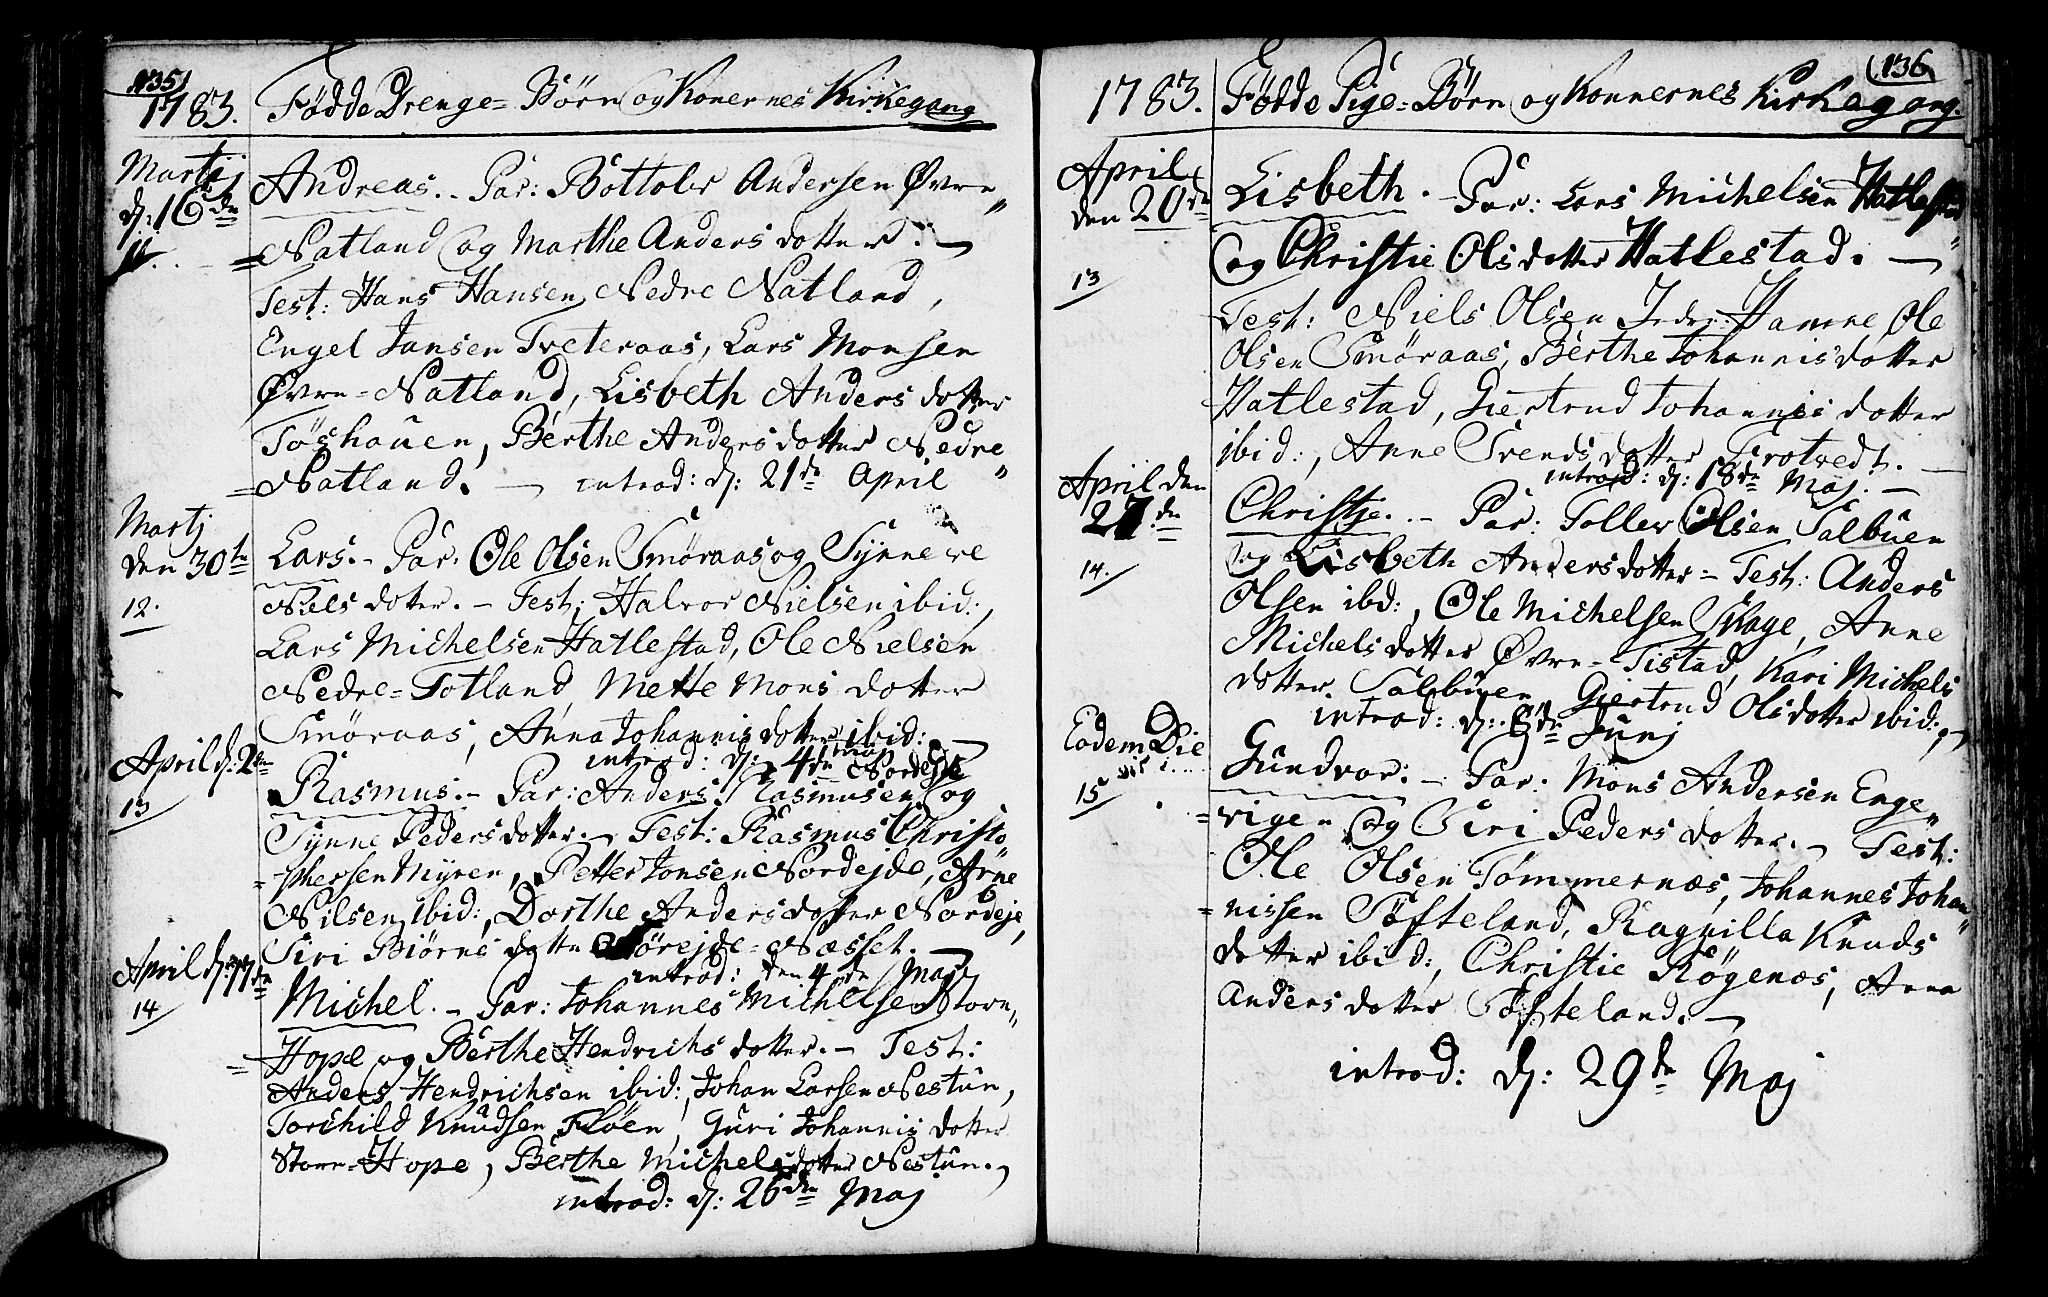 135
1783. Fødde Drenge=Børn og Konernes Kirkegang
Martij
d: 16de
11.
Andreas. Par: Bottolv Andersen Øvre
=Natland og Marthe Anders dotter. —
Test: Hans Hansen Nedre Natland,
Engel Jansen Tveteraas, Lars Monsen
Øvre=Natland, Lisbeth Anders dotter
Tøshauen, Berthe Anders dotter Nedre
=Natland. — introd: d: 21de April
Martj
den 30te
12.
Lars. — Par. Ole Olsen Smøraas og Synneve
Niels dotter. — Test: Halvor Nielsen ibid:,
Lars Michelsen Hatlestad, Ole Nielsen
Nedre=Totland, Mette Mons dotter
Smøraas, Anna Johannis dotter ibid: —
introd: d: 4de Maj
April d: 2den
13
Rasmus. — Par: Anders Rasmusen Nordejde og
Synne Peders dotter. — Test: Rasmus Christo
=phersen Myren, Petter Jonsen Nordejde, Arne
Nilsen ibid:, Dorthe Anders dotter Nordeje,
Siri Biørns dotter Sørejde=Næsset. —
introd: den 4de Maj
April d: 17de
14
Michel. — Par: Johannes Michelsen Store
=Hope og Berthe Hendrichs dotter. — Test:
Anders Hendrichsen ibid:, Johan Larsen Nestun,
Torchild Knudsen Fløen, Guri Johannis dotter
Store=Hope, Berthe Michels dotter Nestun.
introd: d: 26de Maj
136
1783. Fødde Pige=Børn og Konnernes Kirkegang.
April
den 20de
13
Lisbeth. — Par: Lars Michelsen Hatlestad
og Christie Olsdotter Hatlestad. —
Test: Niels Olsen Indre Hamre, Ole
Olsen Smøraas, Berthe Johannis dotter
Hatlestad, Giertrud Johannis dotter
ibid:, Anne Svends dotter Trotvedt. —
introd: d: 18de Maj. —
April den
27de
14.
Christje. — Par: Tollev Olsen Talbuen
og Lisbeth Andersdotter = Test: Anders
Olsen ibd:, Ole Michelsen Skage, Anne
Michels dotter Øvre=Tistad, Kari Michels
dotter Talbuen, Gjertrud Olsdotter ibid:,
introd: d: 8de Junj
Eodem Die
15
Gundvor: — Par: Mons Andersen Enge
=vigen og Siri Peders dotter. — Test:
Ole Olsen Tømmernæs, Johannes Johan
=nissen Søfteland, Ragnilla Knuds
dotter ibid:, Christie Røgenæs, Anna
Anders dotter Søfteland. —
introd: d: 29de Maj